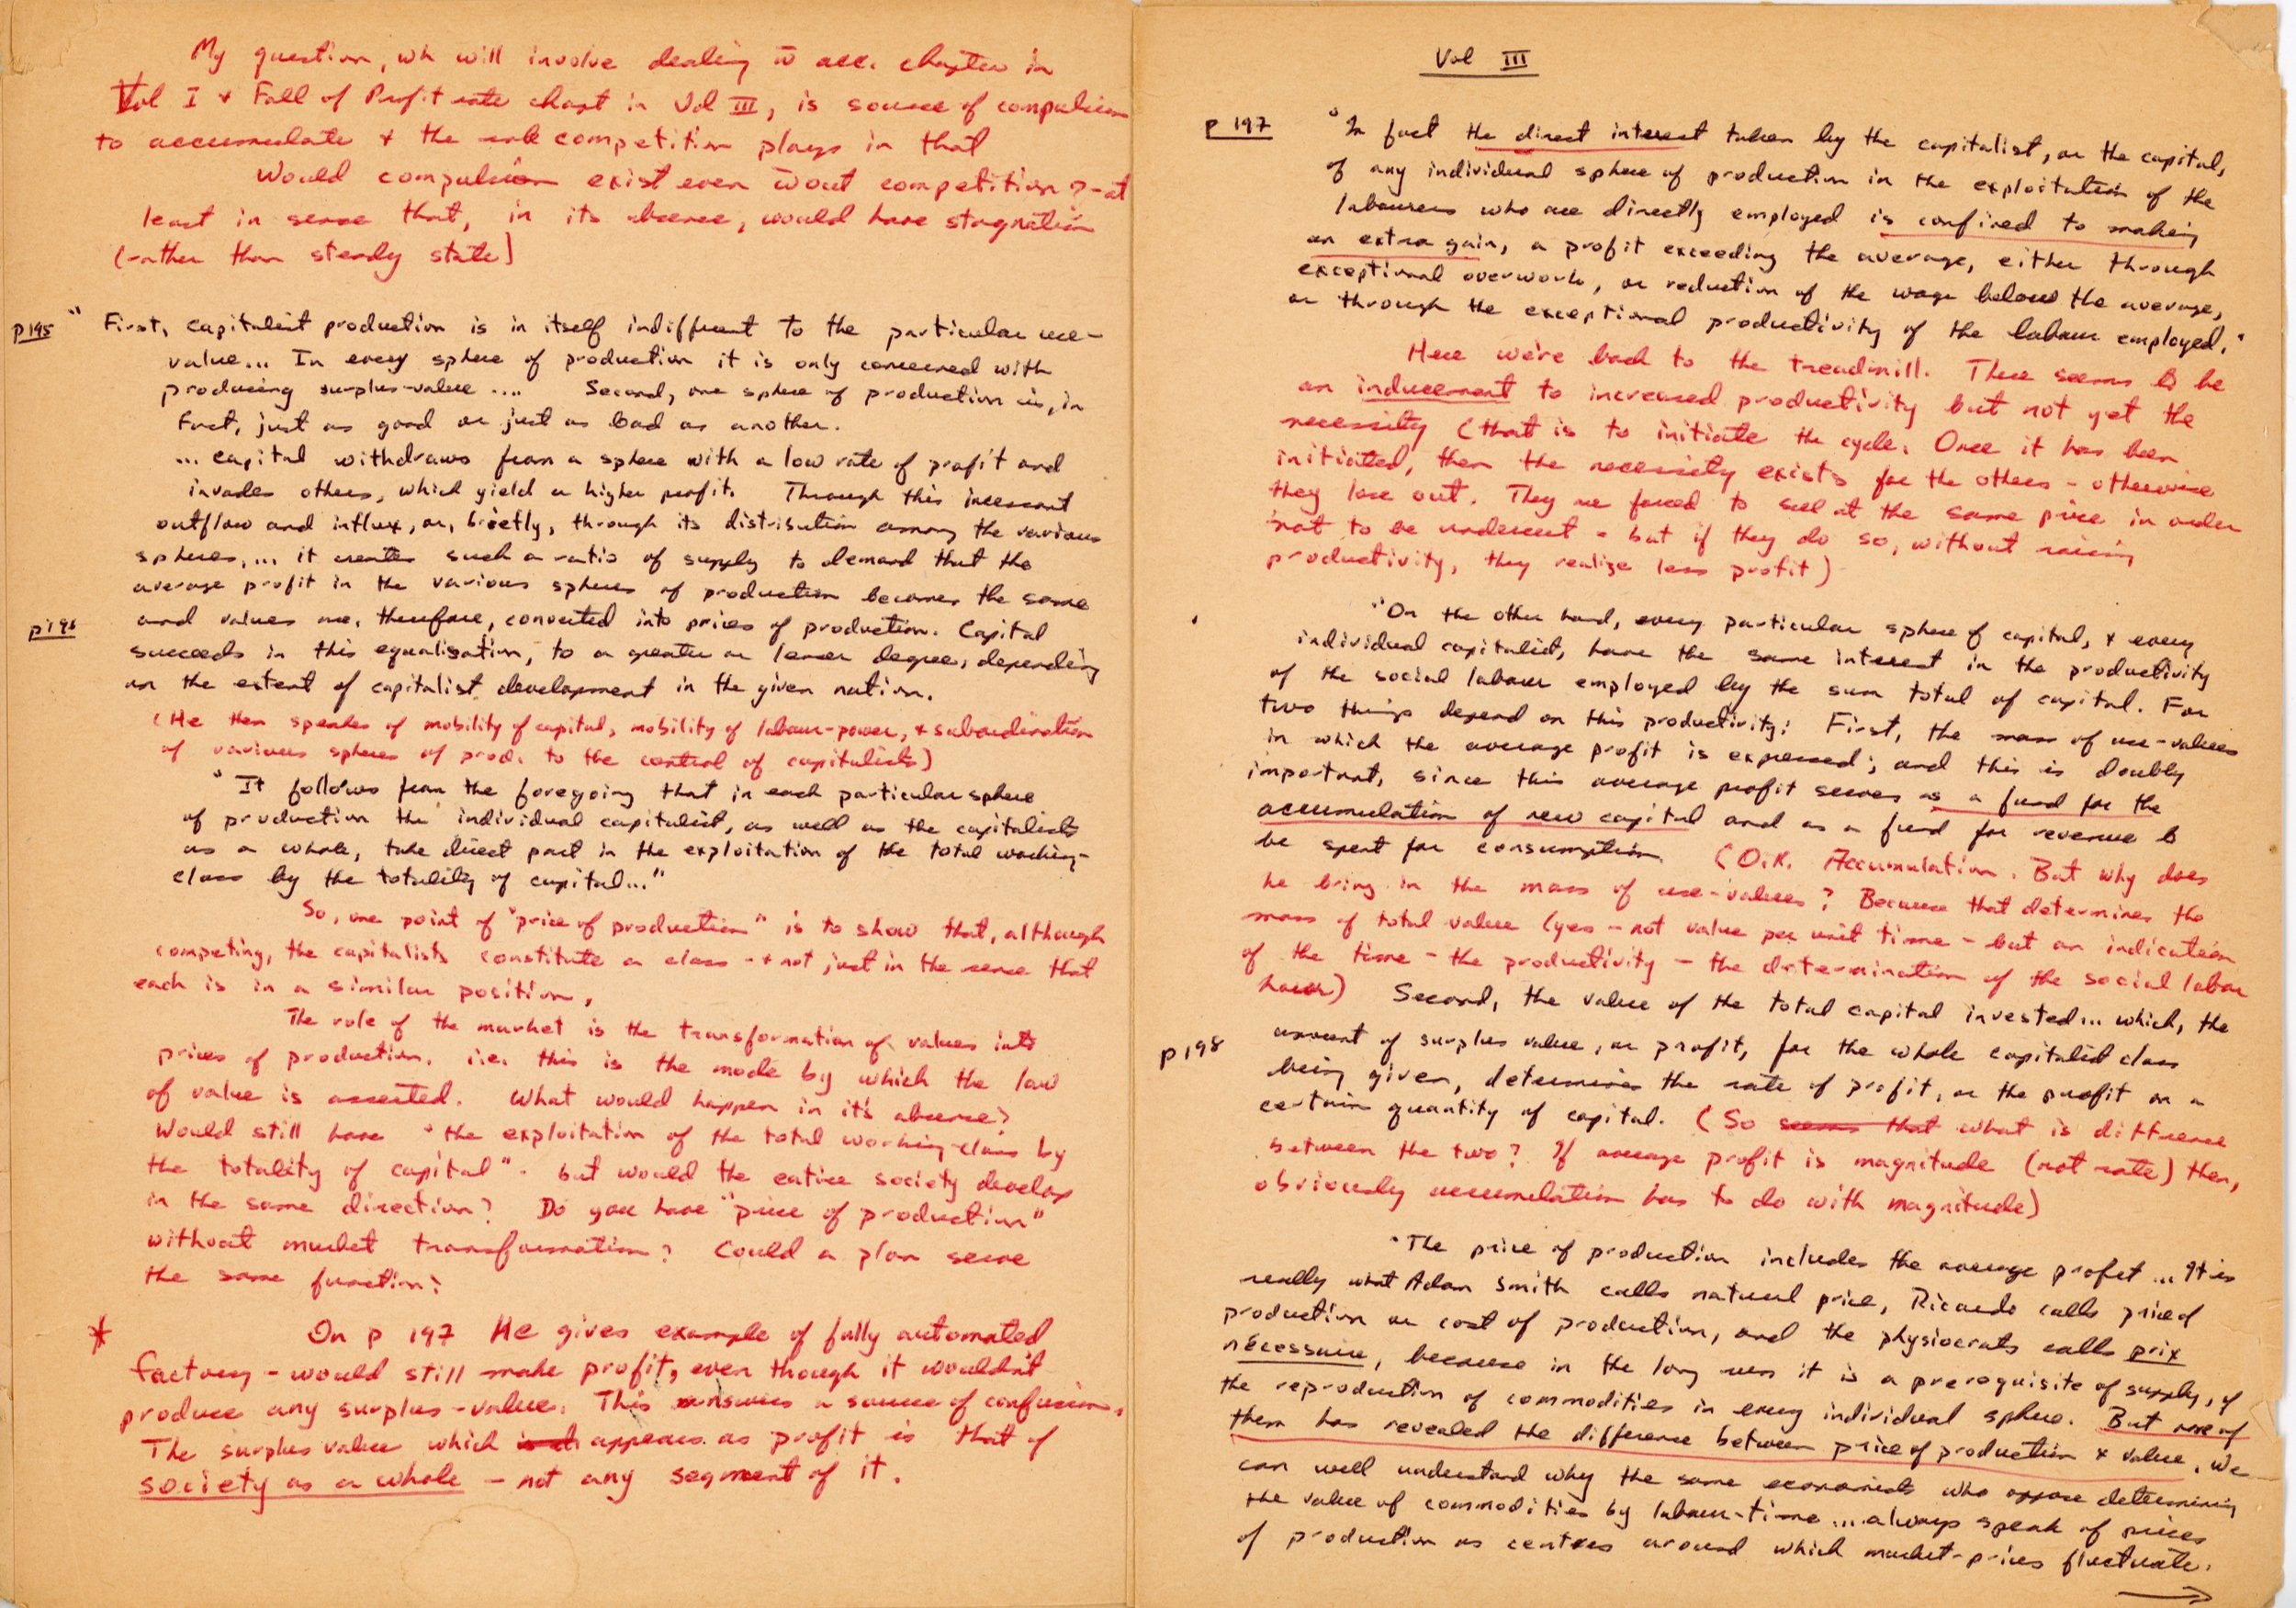 My question, wh will involve dealing w̄ acc. chapter in
Vol I + Fall of Profit rate chapt in Vol III, is source of compulsion
to accumulate + the role competition plays in that
Would compulsion exist even w̄out competition? - at
least in sense that, in its absence, would have stagnation
(rather than steady state)
p195 "First, capitalist production is in itself indifferent to the particular use-
value... In every sphere of production it is only concerned with
producing surplus-value .... Second, one sphere of production is, in
Fact, just as good or just as bad as another.
... capital withdraws from a sphere with a low rate of profit and
invades others, which yield a higher profit. Through this incessant
outflow and influx, or, briefly, through its distribution among the various
spheres, ... it creates such a ratio of supply to demand that the
average profit in the various spheres of production becomes the same
p196 and values are, therefore, converted into prices of production. Capital
succeeds in this equalisation, to a greater or lesser degree, depending
on the extent of capitalist development in the given nation.
(He then speaks of mobility of capital, mobility of labour-power, + subordination
of various spheres of prod. to the control of capitalists)
"It follows from the foregoing that in each particular sphere
of production the individual capitalist, as well as the capitalists
as a whole, take direct part in the exploitation of the total working-
class by the totality of capital..."
So, one point of "price of production" is to show that, although
competing, the capitalists constitute a class - + not just in the sense that
each is in a similar position.
The role of the market is the transformation of values into
prices of production. i.e. this is the mode by which the law
of value is asserted. What would happen in it's absence?
Would still have "the exploitation of the total working-class by
the totality of capital". but would the entire society develop
in the same direction? Do you have "price of production"
without market transformation? Could a plan serve
the same function?
* On p 197 He gives example of fully automated
factory - would still make profit, even though it wouldn't
produce any surplus-value. This answers a source of confusion.
The surplus value which is appears as profit is that of
society as a whole - not any segment of it.
Vol III
p 197 "In fact the direct interest taken by the capitalist, or the capital,
of any individual sphere of production in the exploitation of the
labourers who are directly employed is confined to making
an extra gain, a profit exceeding the average, either through
exceptional overwork, or reduction of the wage below the average,
or through the exceptional productivity of the labour employed."
Here we're back to the treadmill. There seems to be
an inducement to increased productivity but not yet the
necessity (that is to initiate the cycle. Once it has been
initiated, then the necessity exists for the others - otherwise
they lose out. They are forced to sell at the same price in order
not to be undercut - but if they do so, without raising
productivity, they realize less profit)
"On the other hand, every particular sphere of capital, + every
individual capitalist, have the same interest in the productivity
of the social labour employed by the sum total of capital. For
two things depend on this productivity: First, the mass of use-values
in which the average profit is expressed; and this is doubly
important, since this average profit serves as a fund for the
accumulation of new capital and as a fund for revenue to
be spent for consumption. (O.K. Accumulation. But why does
he bring in the mass of use-values? Because that determines the
mass of total value (yes - not value per unit time - but an indication
of the time - the productivity - the determination of the social labor
hour) Second, the value of the total capital invested... which, the
p198 amount of surplus value, or profit, for the whole capitalist class
being given, determines the rate of profit, or the profit on a
certain quantity of capital. (So seems that what is difference
between the two? If average profit is magnitude (not rate) then,
obviously accumulation has to do with magnitude)
"The price of production includes the average profit ... It is
really what Adam Smith calls natural price, Ricardo calls price of
production or cost of production, and the physiocrats calls prix
nécessaire, because in the long run it is a prerequisite of supply, of
the reproduction of commodities in every individual sphere. But none of
them has revealed the difference between price of production + value. We
can well understand why the same economists who oppose determining
the value of commodities by labour-time ... always speak of prices
of production as centres around which market-prices fluctuate.